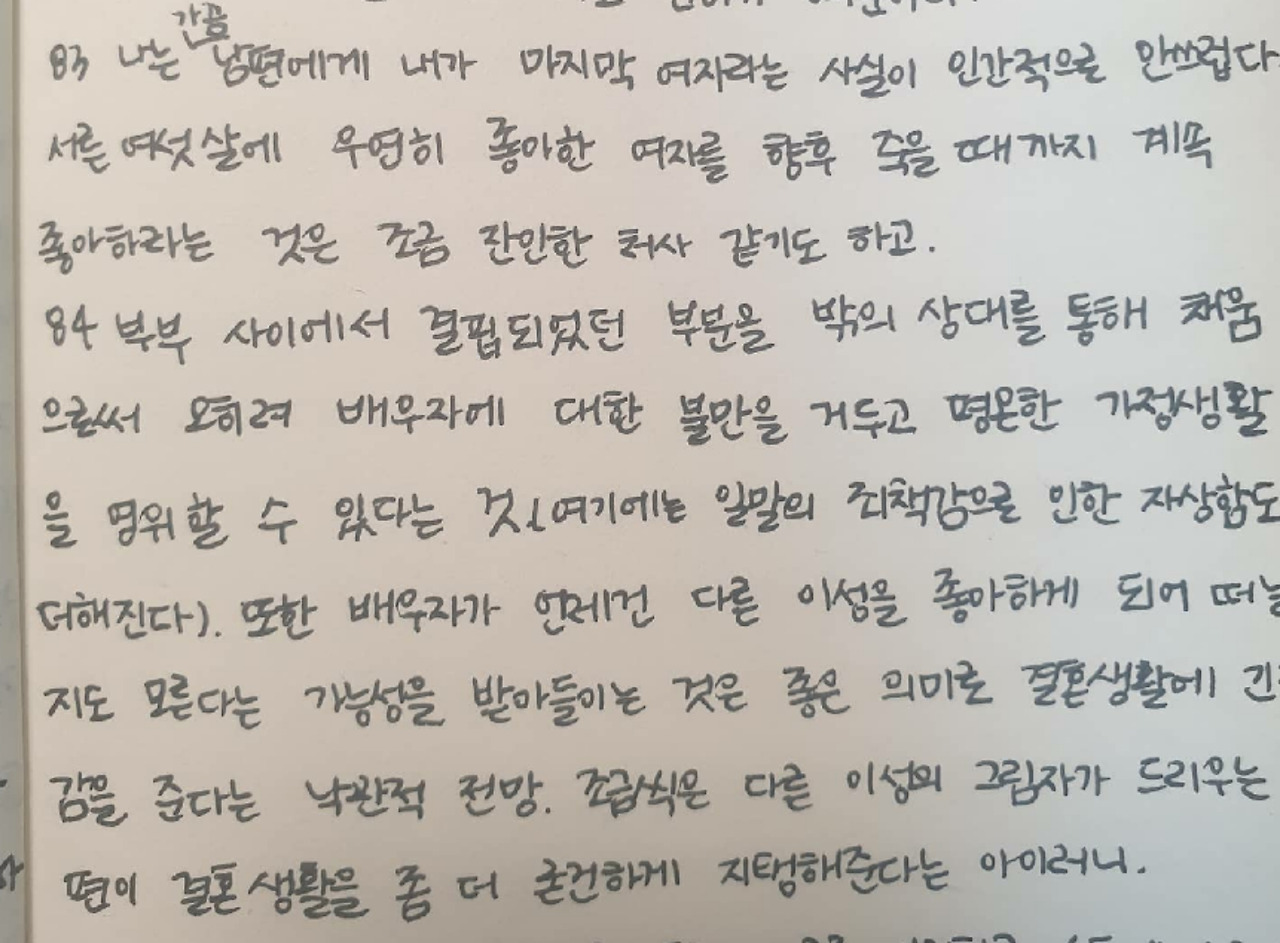 83 나는 가끔 남편에게 내가 마지막 여자라는 사실이 인간적으로 안쓰럽다.
서른 여섯 살에 우연히 좋아한 여자를 향후 죽을 때까지 계속
좋아하라는 것은 조금 잔인한 처사 같기도 하고.
84 부부 사이에서 결핍되었던 부분을 밖의 상대를 통해 채움
으로써 오히려 배우자에 대한 불만을 거두고 평온한 가정생활
을 영위할 수 있다는 것(여기에는 일말의 죄책감으로 인한 자상함도
더해진다). 또한 배우자가 언제건 다른 이성을 좋아하게 되어 떠날
지도 모른다는 가능성을 받아들이는 것은 좋은 의미로 결혼생활에 긴
감을 준다는 낙관적 전망. 조금씩은 다른 이성의 그림자가 드리우는
편이 결혼생활을 좀 더 굳건하게 지탱해준다는 아이러니.